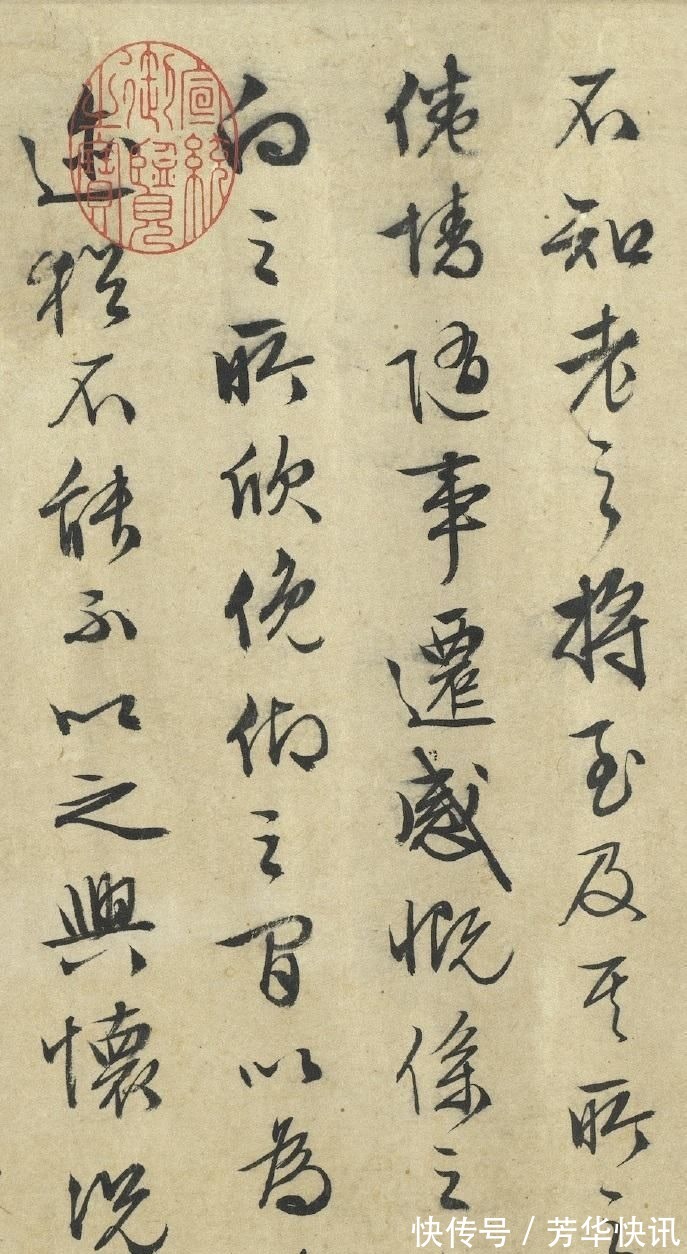 不知老之將至及其所之
倦情隨事遷感慨係之
向之所欣俛仰之間以為
迹猶不能不以之興懷況
宣統
御覽
之寶
快传号 / 芳华快讯